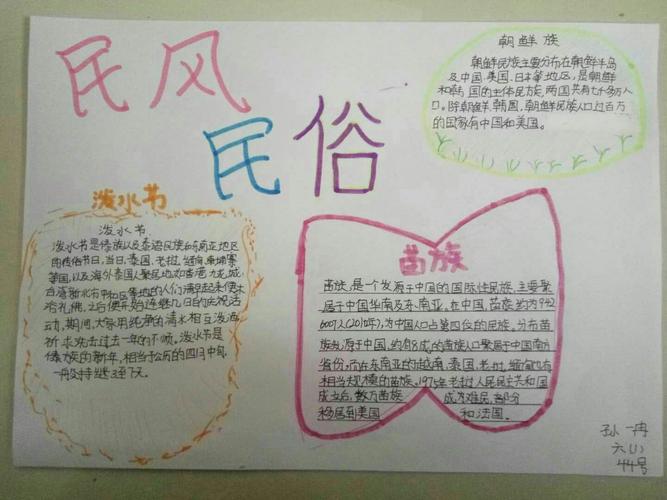 民风
民俗
朝鲜族
朝鲜民族主要分布在朝鲜半岛
及中国、美国、日本等地区,是朝鲜
和韩国的主体民族,两国共有七千多万人
口。除朝鲜,韩国,朝鲜民族人口过百万
的国家有中国和美国。
泼水节
泼水节
泼水节是傣族以及泰语民族和东南亚地区
的传统节日,当日,泰国,老挝,缅甸,柬埔寨
等国,以及海外泰国人聚居地如香港九龙城,
台湾新北市中和区等地的人们清早起来便沐
浴礼佛,之后便开始连续几日的庆祝活
动,期间,大家用纯净的清水相互泼洒
祈求洗去过去一年的不顺。泼水节是
傣族的新年,相当于公历的四月中旬,
一般持续3至7天。
苗族
苗族,是一个发源于中国的国际性民族,主要聚
居于中国华南及东南亚。在中国,苗族约为942
6007人(2010年),为中国人口占第四位的民族。分布苗
族发源于中国,约有8成的苗族人口聚居于中国南方
省份。而在东南亚的越南,泰国,老挝,缅甸也有
相当大规模的苗族。1975年老挝人民民主共和国
成立后,数万苗族 成为难民,部分
移居到美国 和法国。
孙一冉
六(1)
44号